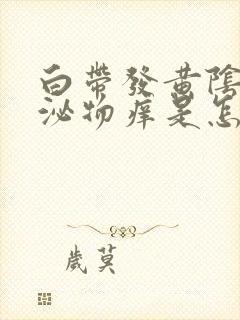 白帶發黃陰
泌物痒是怎
歲莫